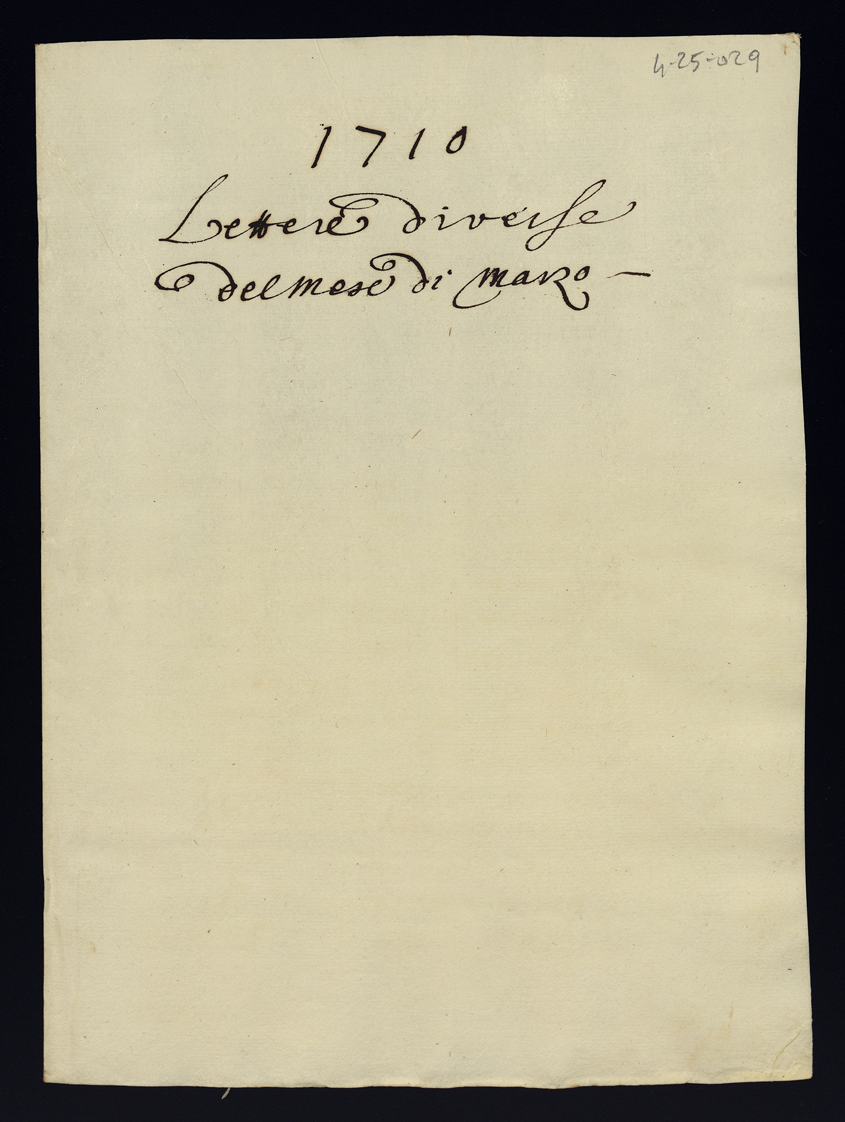 4-25-029
1710
Lettere diverse
del mese di Marzo —